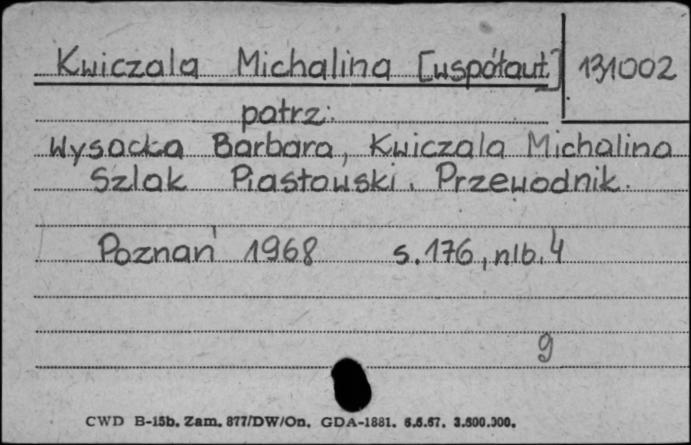 Kwiczala Michalina [współaut.] 131002
patrz:
Wysocka Barbara, Kwiczala Michalina
Szlak Piastowski. Przewodnik.
Poznań 1968 s. 176, nlb. 4
9
CWD B-15b. Zam. 877/DW/On. GDA-1881. 6.6.67. 3.500.000.